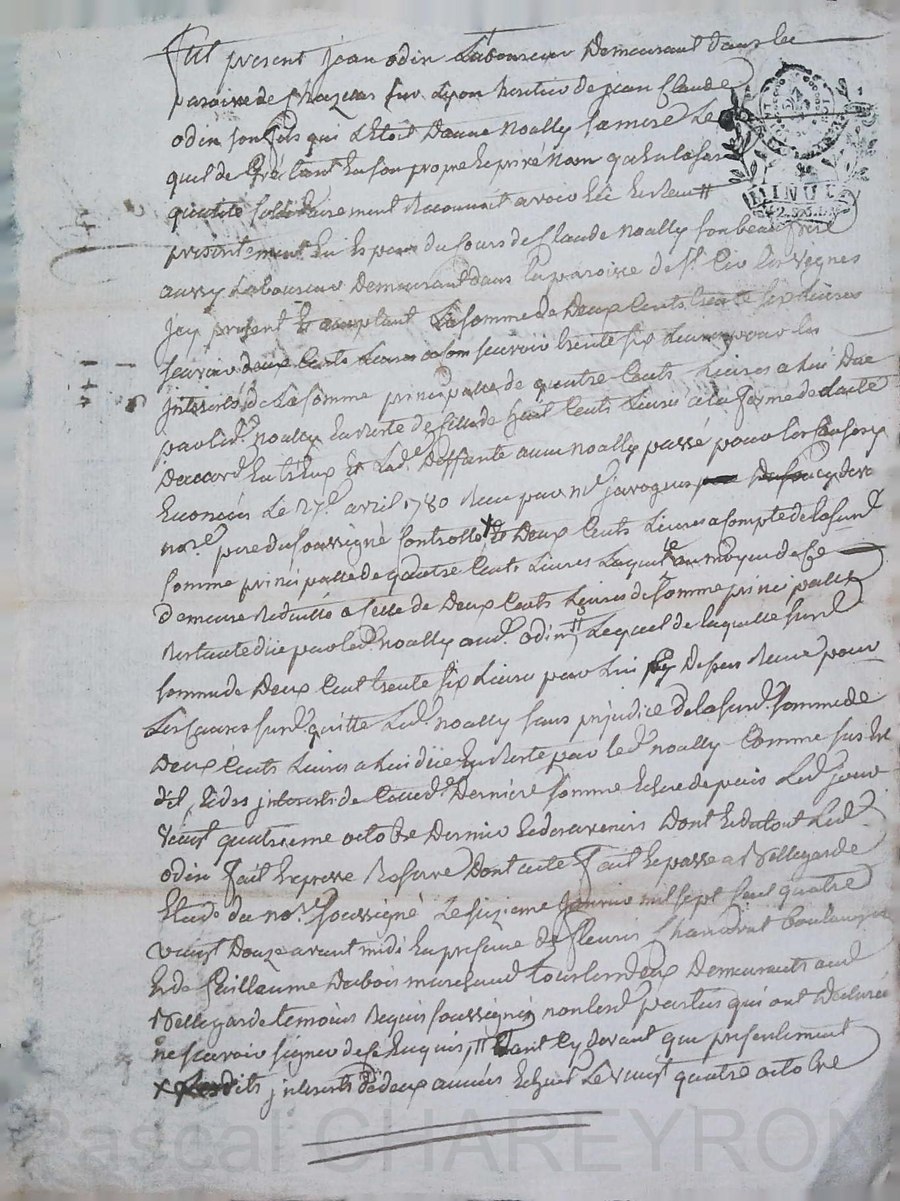 fut present jean odin Laboureur Demeurant dans la
paroisse de Chazelles sur Lyon heritier de jean Claude
odin son fils qui L'Etoit Danne Noally sa mere Le
quel de Gré tant En son propre Et privé Nom qu'En lasus
qualité solidairement Reconnait avoir Eté Et Receu #
presentement En Especes du Cours de Claude Noally son beau frere
aussy Laboureur Demeurant dans la paroisse de St. Cir Les vignes
jcy present Et acceptant La somme de Deux Cents trente six Livres
scavoir deux Cents Livres a Com scavoir trente six Livres pour les
jnterets de La somme principalle de quatre Cents Livres a Lui Due
par led. Noally En Reste de Celle de huit Cents Livres a la forme de Lacte
Daccord Entr'Eux Et Lad. Deffunte anne Noally passé pour les Causes y
Enoncées Le 27e. avril 1780 Recu par me. javogues cy devt
nore. pere du soussigné Controllé x Et Deux Cents Livres a Compte de la surd.
somme principalle de quatre Cents Livres Laquelle au moyen de Ce
Demeure Reduitte a Celle de Deux Cents Livres de somme principalle
Restante düe par led. Noally aud. odin # Lequel de laquelle surd.
somme de Deux Cent trente six Livres par Lui Cy Dessus Recue pour
Les Causes surd. quitte Led. Noally sans préjudice de la surd. somme de
Deux Cents Livres a Lui düe En Reste par led. Noally Comme sus Est
dit, Et des jnterets de Cette d. Derniere somme Echus depuis Led. jour
vingt quatrieme octobre Dernier Et des avenirs Dont Et du tout Led.
odin fait Expresse Reserve Dont acte fait Et passé a Bellegarde
Etude du nore. soussigné Le sixieme janvier mil sept Cent quatre
vingt Douze avant midi En presence de fleuris Chanavat boulanger
Et de Guillaume Dubois marchand tous Les deux Demeurants aud.
Bellegarde temoins Requis soussignés non lesd. parties qui ont Declaré
ne scavoir signer de Ce Enquis, # tant Cy devant que presentement
x Lesdits jnterets de deux années Echues Le vingt quatre octobre
MINUT
Pascal CHAREYRON